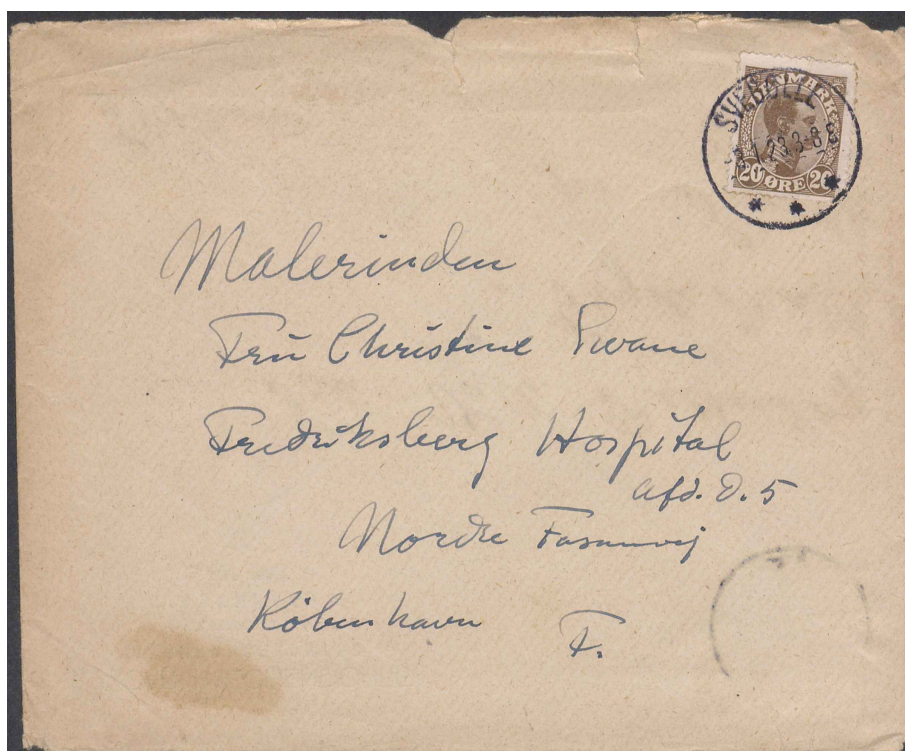 SVEBØLLE
DANMARK
1.23.3-8 E
20 ØRE 20
Malerinden
Fru Christine Swane
Frederiksberg Hospital
Afd. D. 5
Nordre Fasanvej
København F.